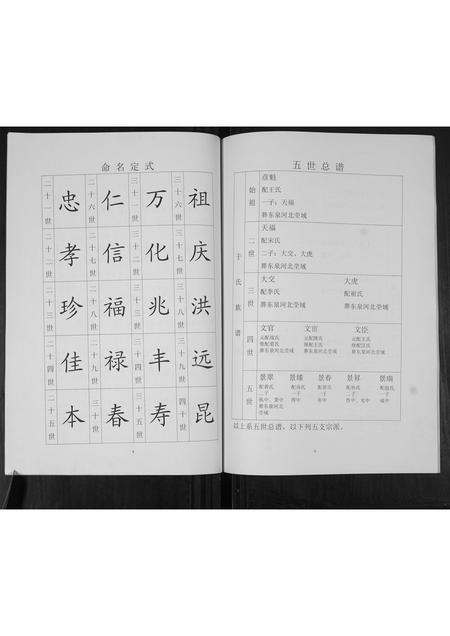 命名定式
二十一世 忠 二十六世 仁 三十一世 万 三十六世 祖
二十二世 孝 二十七世 信 三十二世 化 三十七世 庆
二十三世 珍 二十八世 福 三十三世 兆 三十八世 洪
二十四世 佳 二十九世 禄 三十四世 丰 三十九世 远
二十五世 本 三十世 春 三十五世 寿 四十世 昆
五世总谱
于氏族谱
始祖
彦魁
配王氏
一子：天福
葬东泉河北茔域
二世
天福
配宋氏
二子：大交、大虎
葬东泉河北茔域
三世
大交 大虎
配李氏 配崔氏
葬东泉河北茔域 葬东泉河北茔域
四世
文官 文宦 文臣
葬东泉河北茔域 葬东泉河北茔域 葬东泉河北茔域
五世
景翠 景臻 景春 景昇 景瑞
二子 一子 一子 二子 一子
葬东泉河北
茔域
以上系五世总谱，以下列五支宗派。